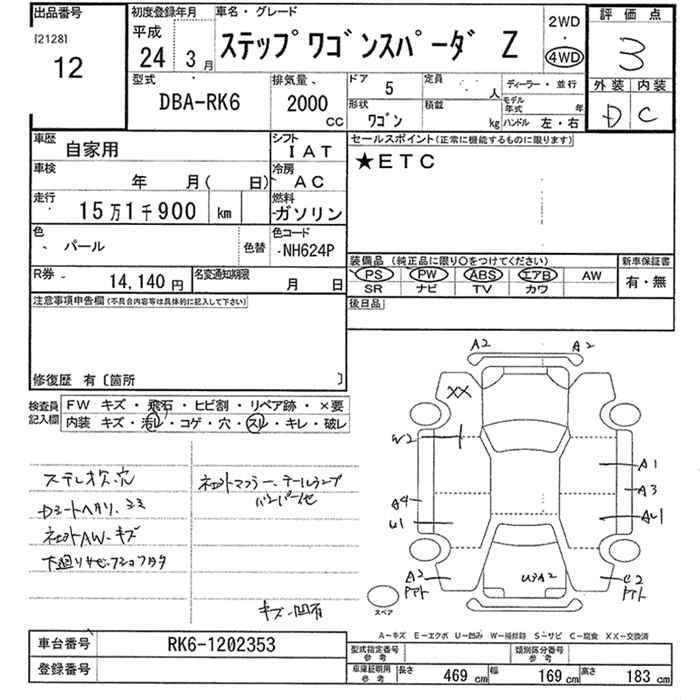 出品番号 初度登録年月 車名・グレード 評価点
[2128] 12
平成 24 3月 ステップワゴンスパーダ Z 2WD 4WD 3
外装 内装 D C
型式 DBA-RK6 排気量 2000 CC
ドア 5 定員 人 ディーラー・並行
形状 ワゴン 積載 kg モデル年式 年 ハンドル 左・右
車歴 自家用 シフト IAT
車検 年 月( 日) 冷房 AC
走行 15万1千900 km 燃料 ガソリン
色 パール 色替 色コード NH624P
R券 14,140円 名変通知期限 月 日
セールスポイント(正常に機能するものに限ります)
★ETC
装備品 (純正品に限り○をつけてください) 新車保証書
PS PW ABS エアB AW 有・無
SR ナビ TV カワ
後日品
注意事項申告欄(不具合内容等は具体的に記入して下さい)
修復歴 有〔箇所 〕
検査員記入欄
FW キズ・飛石・ヒビ割・リペア跡・×要
内装 キズ・汚レ・コゲ・穴・スレ・キレ・破レ
ステレオ欠、穴
社外マフラー、テールランプ
社外AW、キズ
A2 A2
XX
W2
A1
A3
A4
U1
A2
U3A2
C2
スペア
A-キズ E-エクボ U-凹み W-補修跡 S-サビ C-腐食 XX-交換済
車台番号 RK6-1202353
登録番号
型式指定番号 参考 類別区分番号 参考
車庫証明用 参考 長さ 469 cm 幅 169 cm 高さ 183 cm